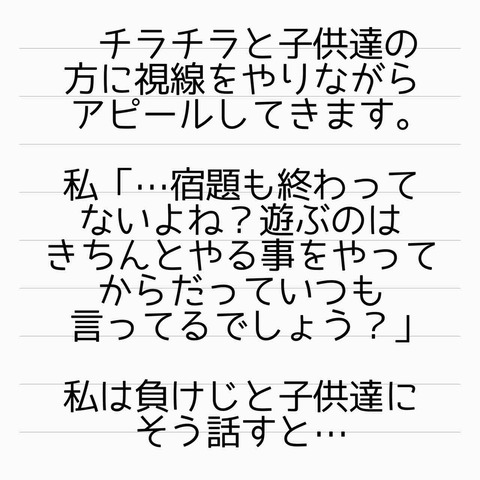 チラチラと子供達の
方に視線をやりながら
アピールしてきます。
私「…宿題も終わって
ないよね？遊ぶのは
きちんとやる事をやって
からだっていつも
言ってるでしょう？」
私は負けじと子供達に
そう話すと…